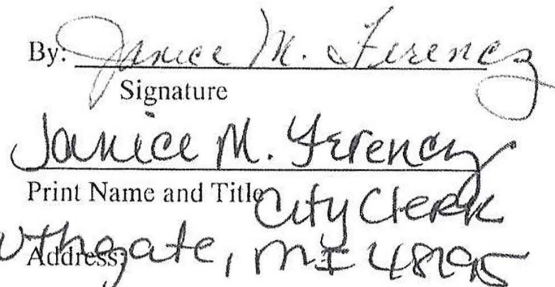 By: Janice M. Ferencz
Signature
Janice M. Ferencz
Print Name and Title City Clerk
Address: uthgate, MI 48195